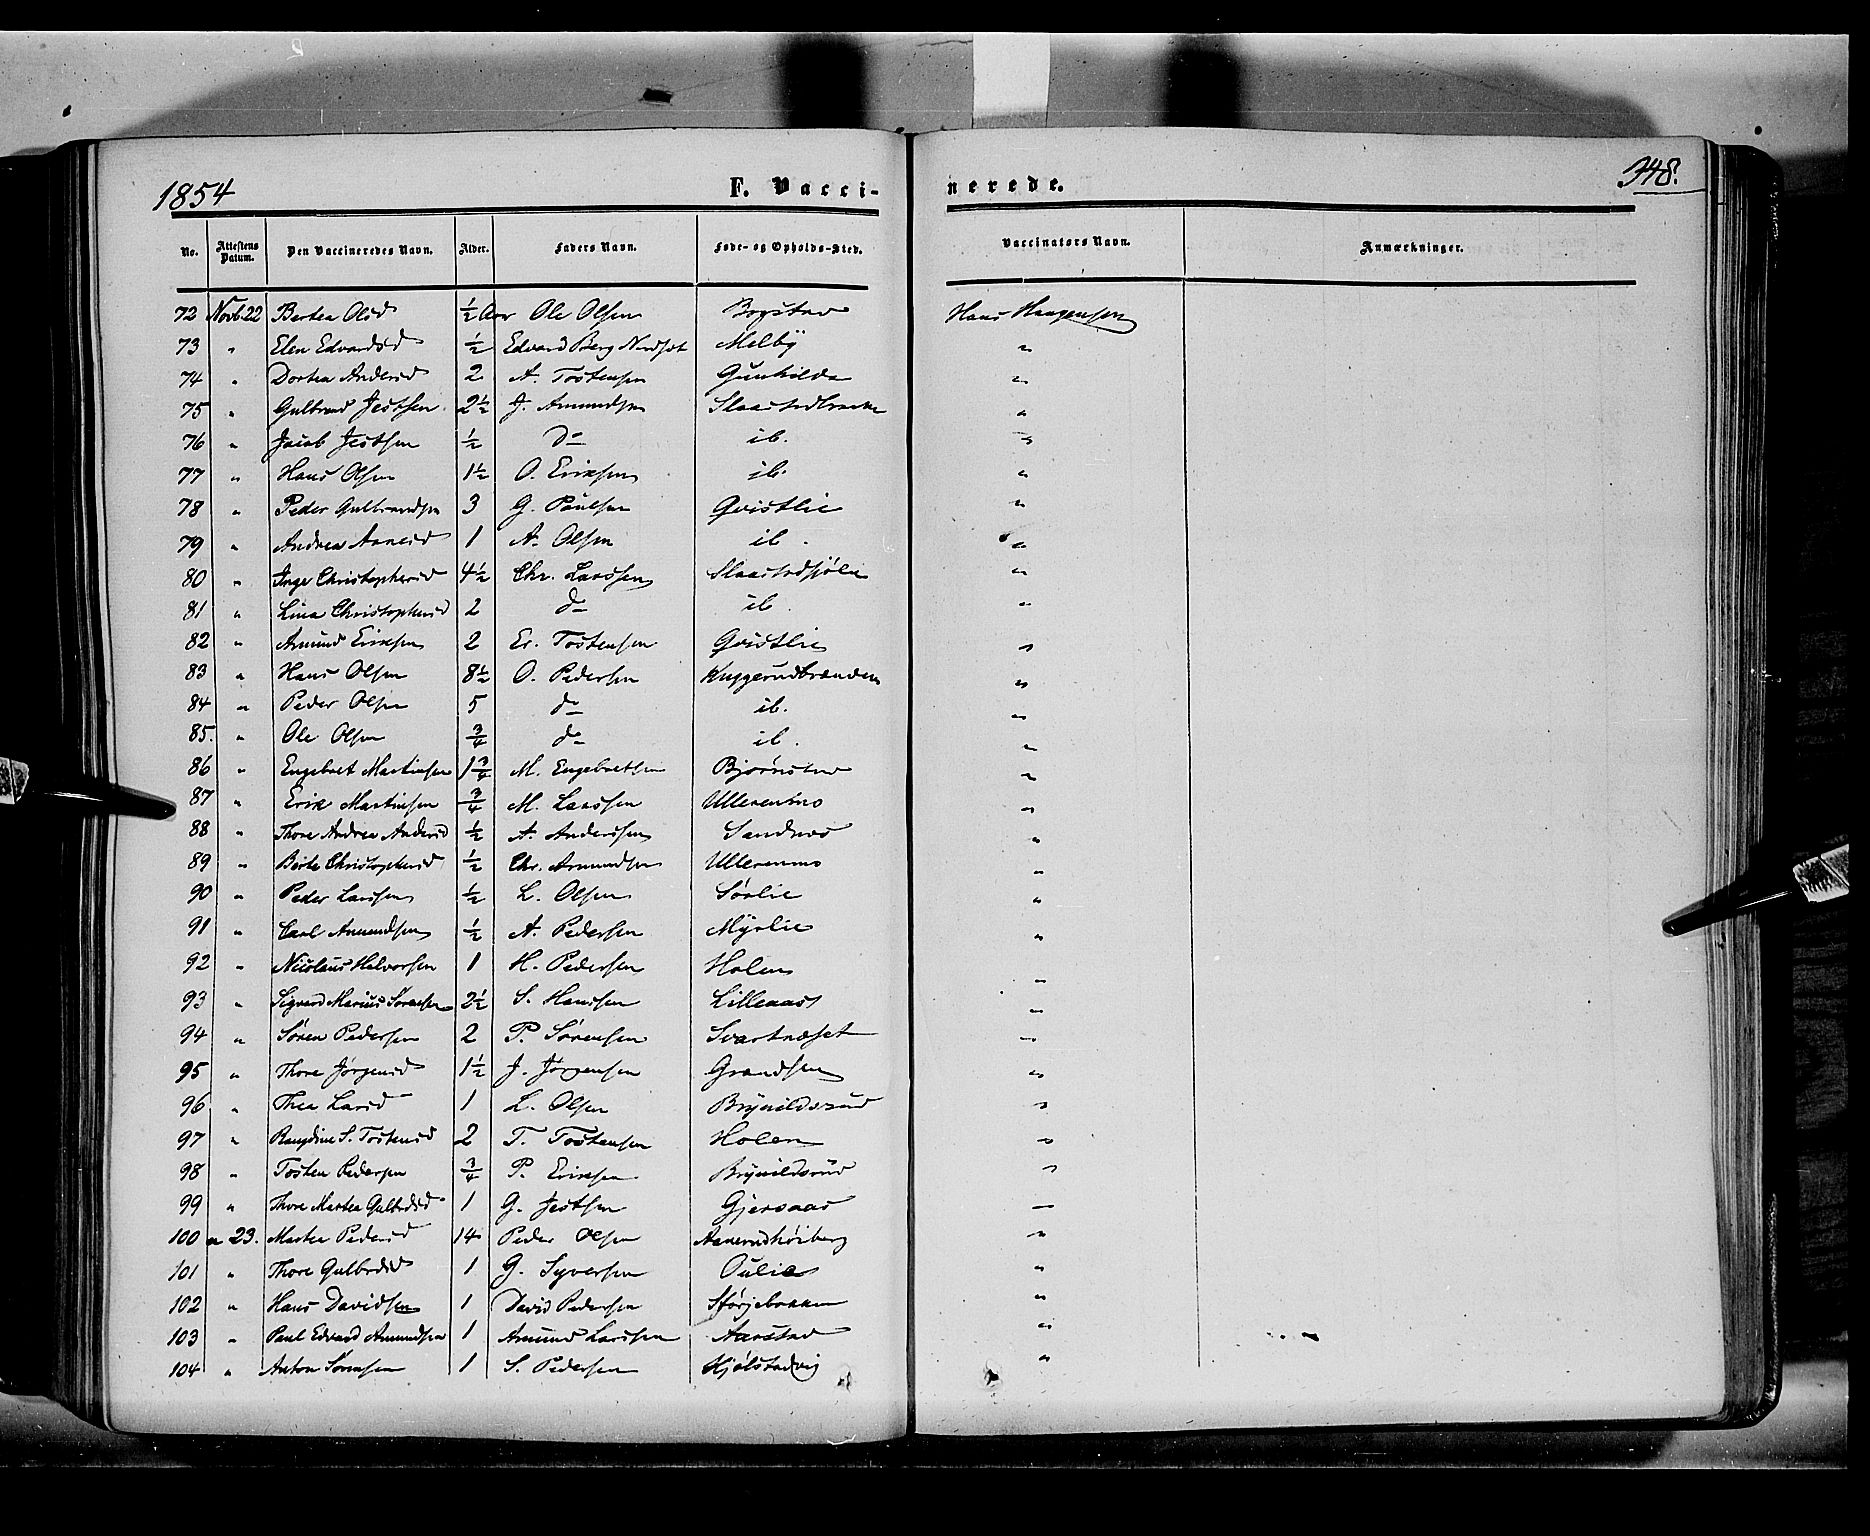 1854 F. Vacci- nerede. 348.
No. Attestens Datum. Den Vaccineredes Navn. Alder. Faders Navn. Føde- og Opholds-Sted. Vaccinators Navn. Anmærkninger.
72 Novb 22 Bertea Olsd ½ Aar Ole Olsen Bogstad Hans Haagensen
73 " Elen Edvardsd ½ Edvard Berg Nordset Melby "
74 " Dortea Andersd 2 A. Tostensen Gunhilds "
75 " Gulbrand Jestsen 2½ J. Amundsen Slaastadbraaten "
76 " Jacob Jestsen ½ do ib. "
77 " Hans Olsen 1½ O. Eriksen ib. "
78 " Peder Gulbrandsen 3 G. Paulsen Qvistlie "
79 " Andrea Arnesd 1 A. Olsen ib. "
80 " Inge Christophersd 4½ Chr. Larssen "
81 " Lina Christophersd 2 do ib. "
82 " Amund Eriksen 2 Er. Tostensen Qvistlie "
83 " Hans Olsen 8½ O. Pedersen Kuggerudbraaten "
84 " Peder Olsen 5 do ib. "
85. " Ole Olsen ¾ do ib. "
86 " Engebret Martinsen 1¾ M. Engebretsen Bjørnstad "
87 " Erik Martinsen ¾ M. Larssen Ullerenmo "
88 " Thore Andrea Andersd ½ A. Anderssen Sandnes "
89 " Berte Christophersd ½ Chr. Amundsen Ullerenmo "
90 " Peder Larssen ½ L. Olsen Sørlie "
91 " Carl Amundsen ½ A. Pedersen Myrlie "
92 " Nicolaus Halvorsen 1 H. Pedersen Holen "
93 " Sigvard Marius Sørensen 2½ S. Hanssen Lilleaas "
94 " Søren Pedersen 2 P. Sørensen Svartnæset "
95 " Thore Jørgensd 1½ J. Jørgensen Grandsen "
96 " Thea Larsd 1 L. Olsen Brynildsrud "
97 " Rangdine S. Tostensd 2 T. Tostensen Holen "
98 " Tosten Pedersen ¾ P. Eriksen Brynildsrud "
99 " Thore Martea Gulbrdsd 1 G. Jestsen Gjersaas "
100 " 23. Martea Pedersd 14 Peder Olsen Aanerudhøiberg "
101 " Thore Gulbrdsd 1 G. Syversen Oulie "
102 " Hans Davidsen 1 David Pedersen Størjebakken "
103 " Paul Edvard Amundsen 1 Amund Larssen Aarstad "
104 " Anton Sørensen 1 S. Pedersen Hjølstadvig "